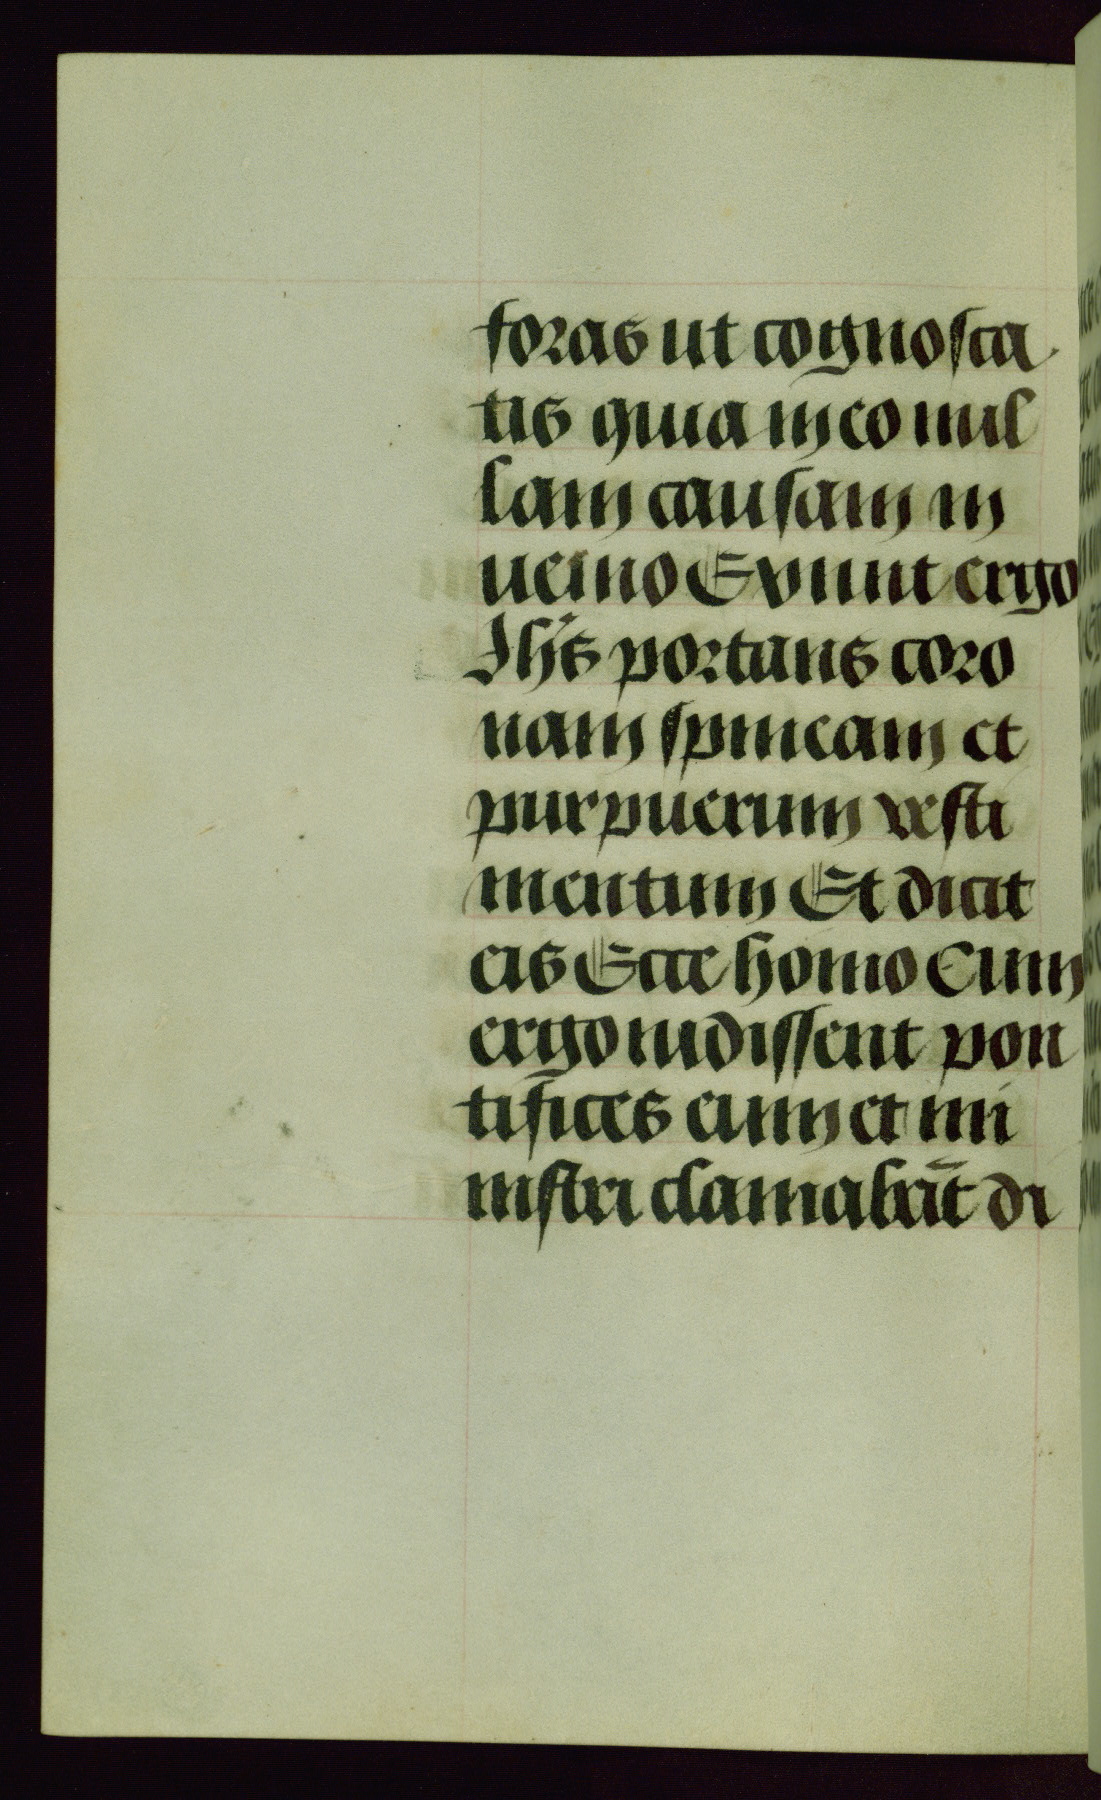 foras ut cognosca
tis quia in eo nul
lam causam in
uenio Exiuit ergo
Ihs̄ portans coro
nam spineam et
purpuerum vesti
mentum Et dicit
eis Ecce homo Cum
ergo uidissent pon
tifices eum et mi
nistri clamabāt di